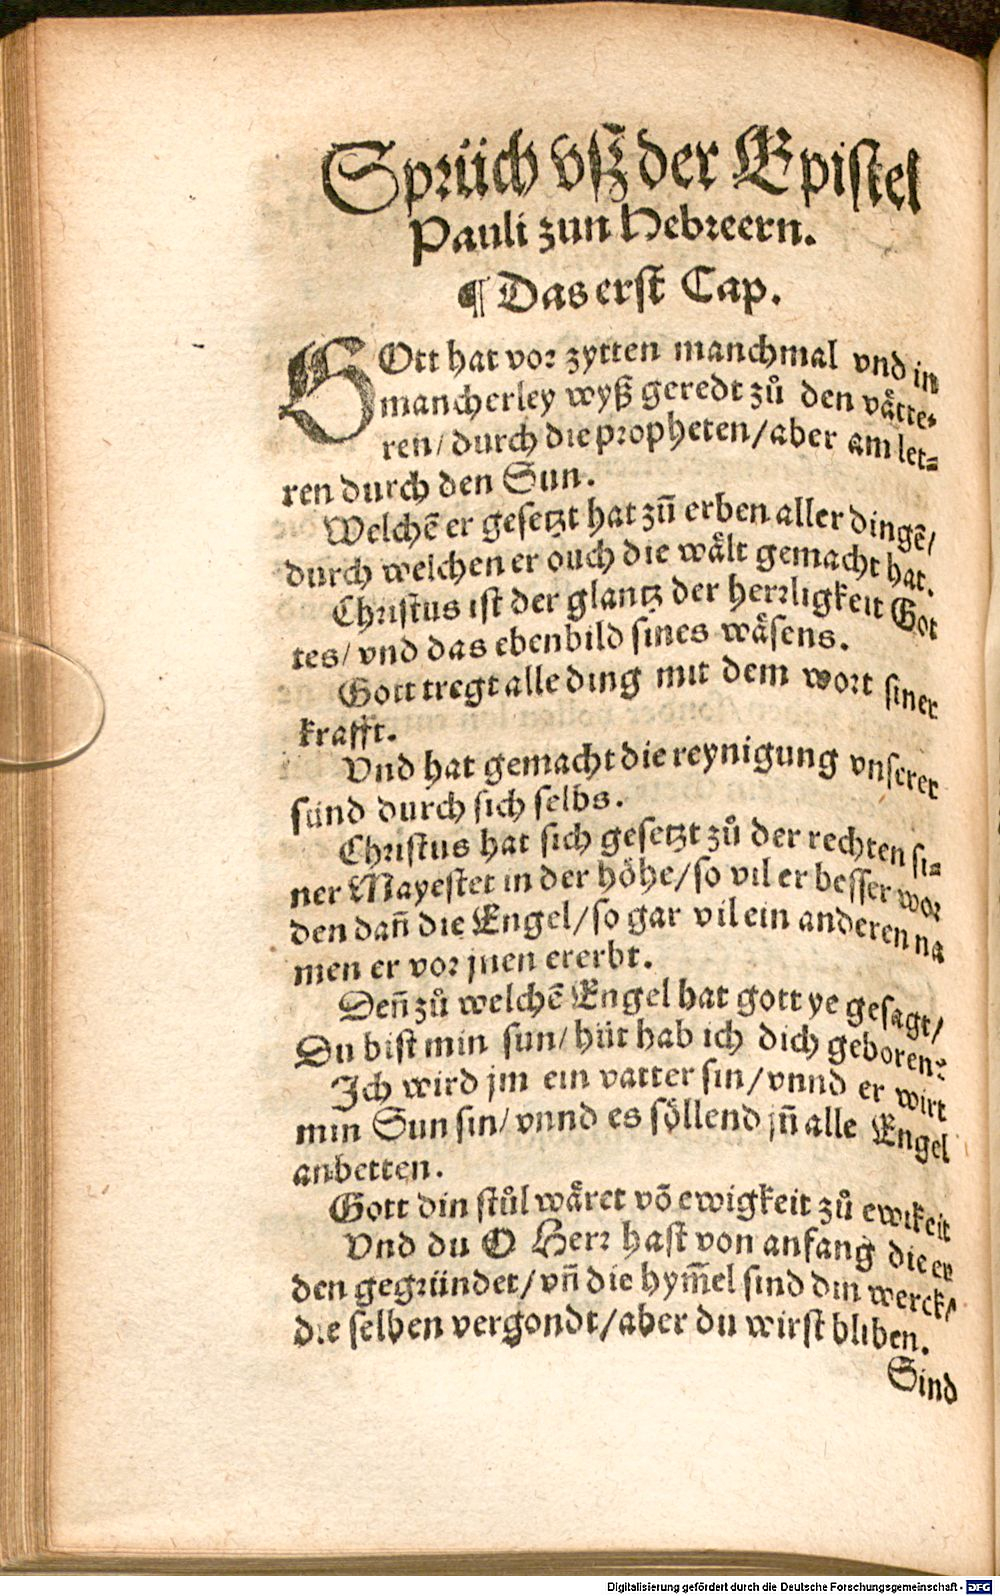 Sprüch vſz der Epiſtel
Pauli zun Hebreern.
¶ Das erſt Cap.
GOtt hat vor zytten manchmal vnd in
mancherley wyß geredt zů den våtte⸗
ren/ durch die propheten/ aber am let⸗
ren durch den Sun.
Welchē er geſetzt hat zū erben aller dingē/
durch welchen er ouch die wålt gemacht hat.
Chriſtus iſt der glantz der herrligkeit Got
tes/ vnd das ebenbild ſines wåſens.
Gott tregt alle ding mit dem wort ſiner
krafft.
Vnd hat gemacht die reynigung vnſerer
ſünd durch ſich ſelbs.
Chriſtus hat ſich geſetzt zů der rechten ſi⸗
ner Mayeſtet in der höhe/ ſo vil er beſſer wor
den dañ die Engel/ ſo gar vil ein anderen na
men er vor jnen ererbt.
Deñ zů welchē Engel hat gott ye geſagt/
Du biſt min ſun/ hüt hab ich dich geboren?
Ich wird jm ein vatter ſin/ vnnd er wirt
min Sun ſin/ vnnd es ſöllend jñ alle Engel
anbetten.
Gott din ſtůl wåret vō ewigkeit zů ewikeit
Vnd du O Herr haſt von anfang die er
den gegründet/ vñ die hym̃el ſind din werck/
die ſelben vergondt/ aber du wirſt bliben.
Sind
Digitalisierung gefördert durch die Deutsche Forschungsgemeinschaft - DFG